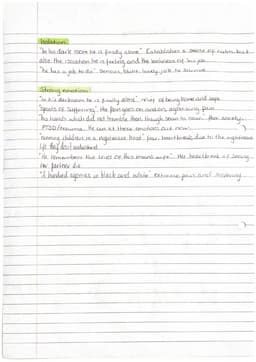 Isolation
"In his dark room he is finally alone" Establishes a sense of calm but
also the isolation he is feeling and the loneliness of his job
"he has a job to do" Serious, blunt, lonely job to survive
Strong emotion
"In his darkroom he is finally alone" relief of being home and safe
"spools of suffering" the pain goes on and on, agonising pain
"his hands which did not tremble then though seem to now" fear, anxiety,
PTSD/trauma. He can let these emotions out now.
"running children in a nightmare heat" fear, heartbreak due to the nightmare
life they
"He remembers the cries of this man's wife" Her heartbreak of seeing
her partner die
"A hundred agonies in black and white" extreme pain and suffering